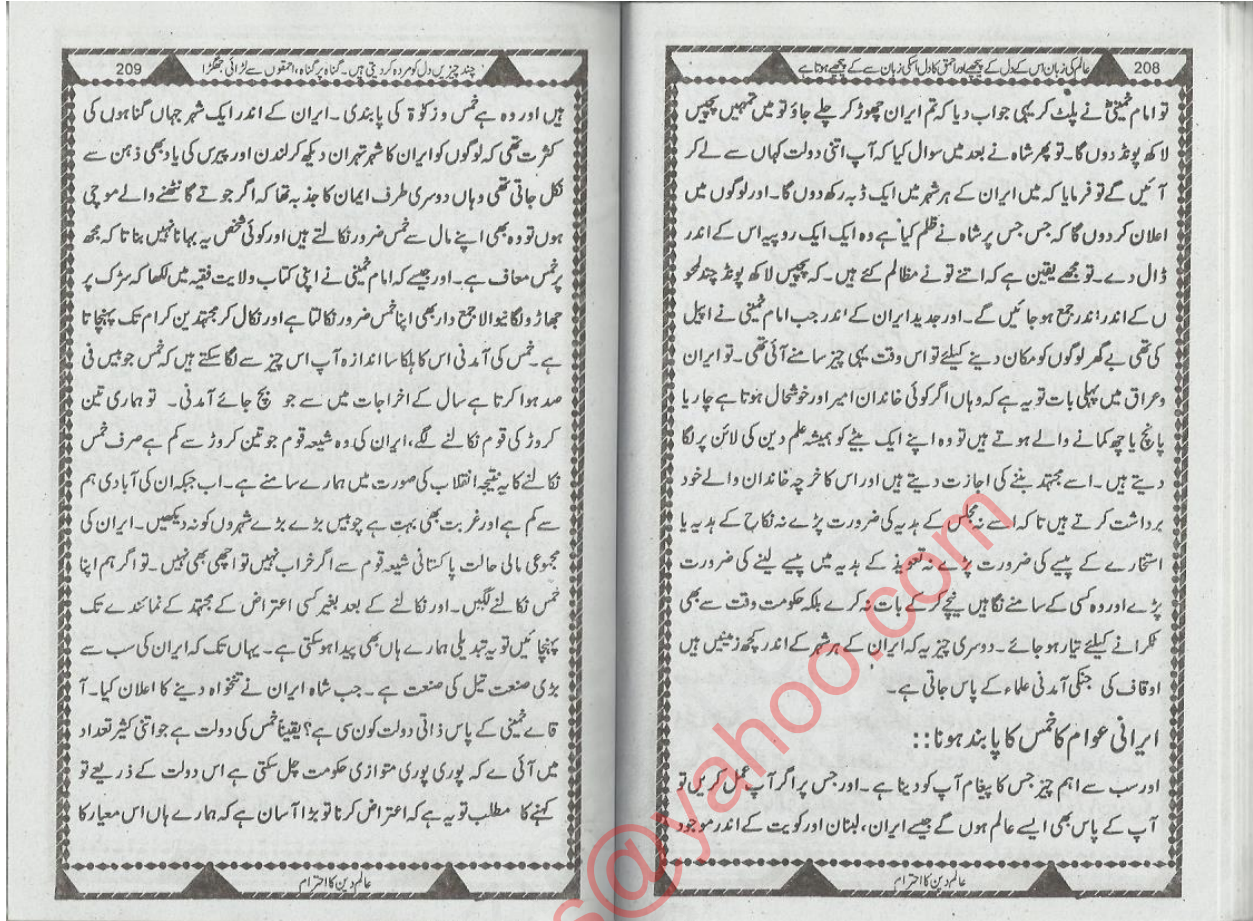 208
عالم کی زبان اس کے دل کے پیچھے اور احمق کا دل اسکی زبان سے کے پیچھے ہوتا ہے
تو امام خمینیؒ نے پلٹ کر یہی جواب دیا کہ تم ایران چھوڑ کر چلے جاؤ تو میں تمہیں پچیس
لاکھ پونڈ دوں گا۔ تو پھر شاہ نے بعد میں سوال کیا کہ آپ اتنی دولت کہاں سے لے کر
آئیں گے تو فرمایا کہ میں ایران کے ہر شہر میں ایک ڈبہ رکھ دوں گا۔ اور لوگوں میں
اعلان کر دوں گا کہ جس جس پر شاہ نے ظلم کیا ہے وہ ایک ایک روپیہ اس کے اندر
ڈال دے۔ تو مجھے یقین ہے کہ اتنے تو نے مظالم کئے ہیں۔ کہ پچیس لاکھ پونڈ چند لمحو
ں کے اندر اندر جمع ہو جائیں گے۔ اور جدید ایران کے اندر جب امام خمینی نے اپیل
کی تھی بے گھر لوگوں کو مکان دینے کیلئے تو اس وقت یہی چیز سامنے آئی تھی۔ تو ایران
و عراق میں پہلی بات تو یہ ہے کہ وہاں اگر کوئی خاندان امیر اور خوشحال ہوتا ہے چار یا
پانچ یا چھ کمانے والے ہوتے ہیں تو وہ اپنے ایک بیٹے کو ہمیشہ علم دین کی لائن پر لگا
دیتے ہیں۔ اسے مجتہد بننے کی اجازت دیتے ہیں اور اس کا خرچہ خاندان والے خود
برداشت کرتے ہیں تا کہ اسے نہ مجلس کے ہدیہ کی ضرورت پڑے نہ نکاح کے ہدیہ یا
استخارے کے پیسے کی ضرورت پڑے نہ تعویذ کے ہدیہ میں پیسے لینے کی ضرورت
پڑے اور وہ کسی کے سامنے نگاہیں نیچے کر کے بات نہ کرے بلکہ حکومت وقت سے بھی
ٹکرانے کیلئے تیار ہو جائے۔ دوسری چیز یہ کہ ایران کے ہر شہر کے اندر کچھ زمینیں ہیں
اوقاف کی جنکی آمدنی علماء کے پاس جاتی ہے۔
ایرانی عوام کا خمس کا پابند ہونا::
اور سب سے اہم چیز جس کا پیغام آپ کو دینا ہے۔ اور جس پر اگر آپ عمل کریں تو
آپ کے پاس بھی ایسے عالم ہوں گے جیسے ایران، لبنان اور کویت کے اندر موجود
عالم دین کا احترام
چند چیزیں دل کو مردہ کر دیتی ہیں۔ گناہ پر گناہ، احمقوں سے لڑائی جھگڑا
209
ہیں اور وہ ہے خمس و زکوٰۃ کی پابندی۔ ایران کے اندر ایک شہر جہاں گناہوں کی
کثرت تھی کہ لوگوں کو ایران کا شہر تہران دیکھ کر لندن اور پیرس کی یاد بھی ذہن سے
نکل جاتی تھی وہاں دوسری طرف ایمان کا جذبہ تھا کہ اگر جوتے گانٹھنے والے موچی
ہوں تو وہ بھی اپنے مال سے خمس ضرور نکالتے ہیں اور کوئی شخص یہ بہانا نہیں بناتا کہ مجھ
پر خمس معاف ہے۔ اور جیسے کہ امام خمینی نے اپنی کتاب ولایت فقیہ میں لکھا کہ سڑک پر
جھاڑو لگانیوالا جمع دار بھی اپنا خمس ضرور نکالتا ہے اور نکال کر مجتہدین کرام تک پہنچاتا
ہے۔ خمس کی آمدنی اس کا ہلکا سا اندازہ آپ اس چیز سے لگا سکتے ہیں کہ خمس جو بیس فی
صد ہوا کرتا ہے سال کے اخراجات میں سے جو بچ جائے آمدنی۔ تو ہماری تین
کروڑ کی قوم نکالنے لگے، ایران کی وہ شیعہ قوم جو تین کروڑ سے کم ہے صرف خمس
نکالنے کا یہ نتیجہ انقلاب کی صورت میں ہمارے سامنے ہے۔ اب جبکہ ان کی آبادی ہم
سے کم ہے اور غربت بھی بہت ہے چوبیس بڑے بڑے شہروں کو نہ دیکھیں۔ ایران کی
مجموعی مالی حالت پاکستانی شیعہ قوم سے اگر خراب نہیں تو اچھی بھی نہیں۔ تو اگر ہم اپنا
خمس نکالنے لگیں۔ اور نکالنے کے بعد بغیر کسی اعتراض کے مجتہد کے نمائندے تک
پہنچائیں تو یہ تبدیلی ہمارے ہاں بھی پیدا ہو سکتی ہے۔ یہاں تک کہ ایران کی سب سے
بڑی صنعت تیل کی صنعت ہے۔ جب شاہ ایران نے تنخواہ دینے کا اعلان کیا۔ آ
قائے خمینی کے پاس ذاتی دولت کون سی ہے؟ یقیناً خمس کی دولت ہے جو اتنی کثیر تعداد
میں آئی ے کہ پوری پوری متوازی حکومت چل سکتی ہے اس دولت کے ذریعے تو
کہنے کا مطلب تو یہ ہے کہ اعتراض کرنا تو بڑا آسان ہے کہ ہمارے ہاں اس معیار کا
عالم دین کا احترام
s@yahoo.com